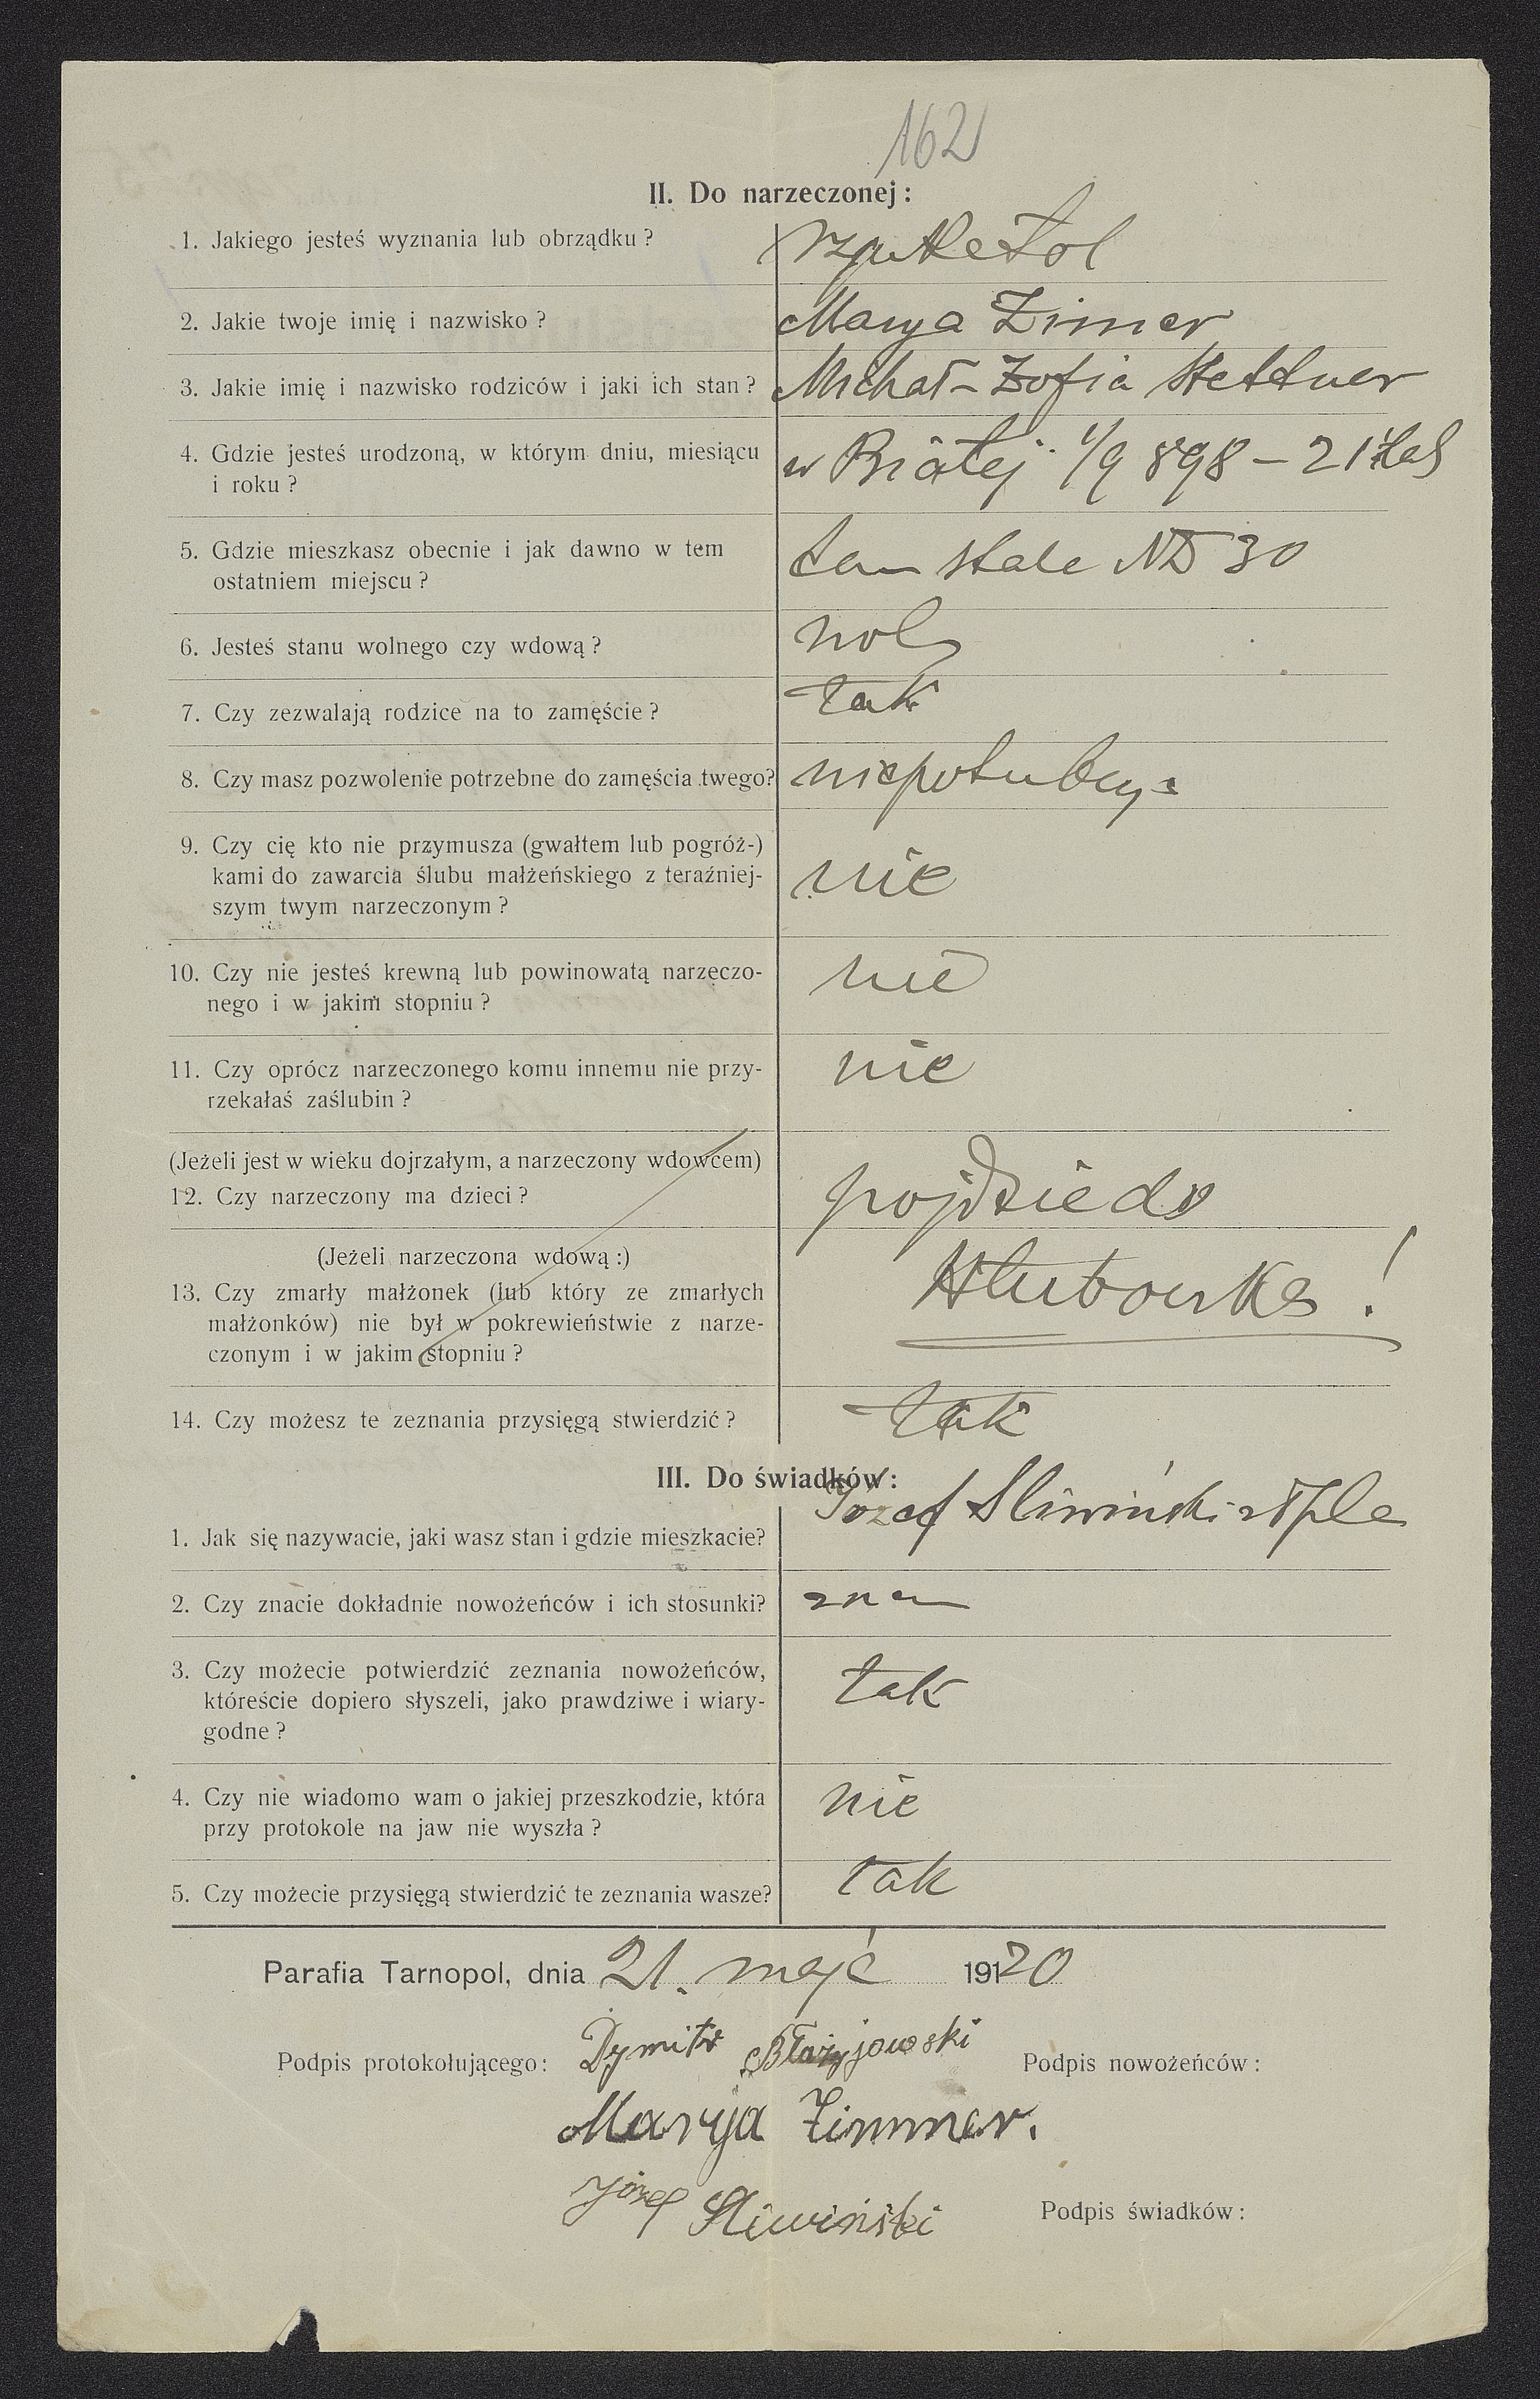 162
II. Do narzeczonej:
1. Jakiego jesteś wyznania lub obrządku?
2. Jakie twoje imię i nazwisko? Marya Zimer
3. Jakie imię i nazwisko rodziców i jaki ich stan? Michał – Zofia Stettner
4. Gdzie jesteś urodzoną, w którym dniu, miesiącu w Białej 1/9 898 – 21
i roku?
5. Gdzie mieszkasz obecnie i jak dawno w tem tam stale ND 30
ostatniem miejscu?
6. Jesteś stanu wolnego czy wdową? wol
7. Czy zezwalają rodzice na to zamęście? tak
8. Czy masz pozwolenie potrzebne do zamęścia twego?
9. Czy cię kto nie przymusza (gwałtem lub pogróż-)
kami do zawarcia ślubu małżeńskiego z teraźniej- nie
szym twym narzeczonym?
10. Czy nie jesteś krewną lub powinowatą narzeczo- nie
nego i w jakim stopniu?
11. Czy oprócz narzeczonego komu innemu nie przy- nie
rzekałaś zaślubin?
(Jeżeli jest w wieku dojrzałym, a narzeczony wdowcem)
12. Czy narzeczony ma dzieci? pojdzie do
(Jeżeli narzeczona wdową:)
13. Czy zmarły małżonek (lub który ze zmarłych
małżonków) nie był w pokrewieństwie z narze-
czonym i w jakim stopniu?
14. Czy możesz te zeznania przysięgą stwierdzić? tak
III. Do świadków:
1. Jak się nazywacie, jaki wasz stan i gdzie mieszkacie? Józef Śliwiński
2. Czy znacie dokładnie nowożeńców i ich stosunki? znam
3. Czy możecie potwierdzić zeznania nowożeńców, tak
któreście dopiero słyszeli, jako prawdziwe i wiary-
godne?
4. Czy nie wiadomo wam o jakiej przeszkodzie, która nie
przy protokole na jaw nie wyszła?
5. Czy możecie przysięgą stwierdzić te zeznania wasze? tak
Parafia Tarnopol, dnia 21. maja 1920
Podpis protokołującego: Dymitr Błażyjowski Podpis nowożeńców:
Marya Zimmer.
Józef Śliwiński Podpis świadków: